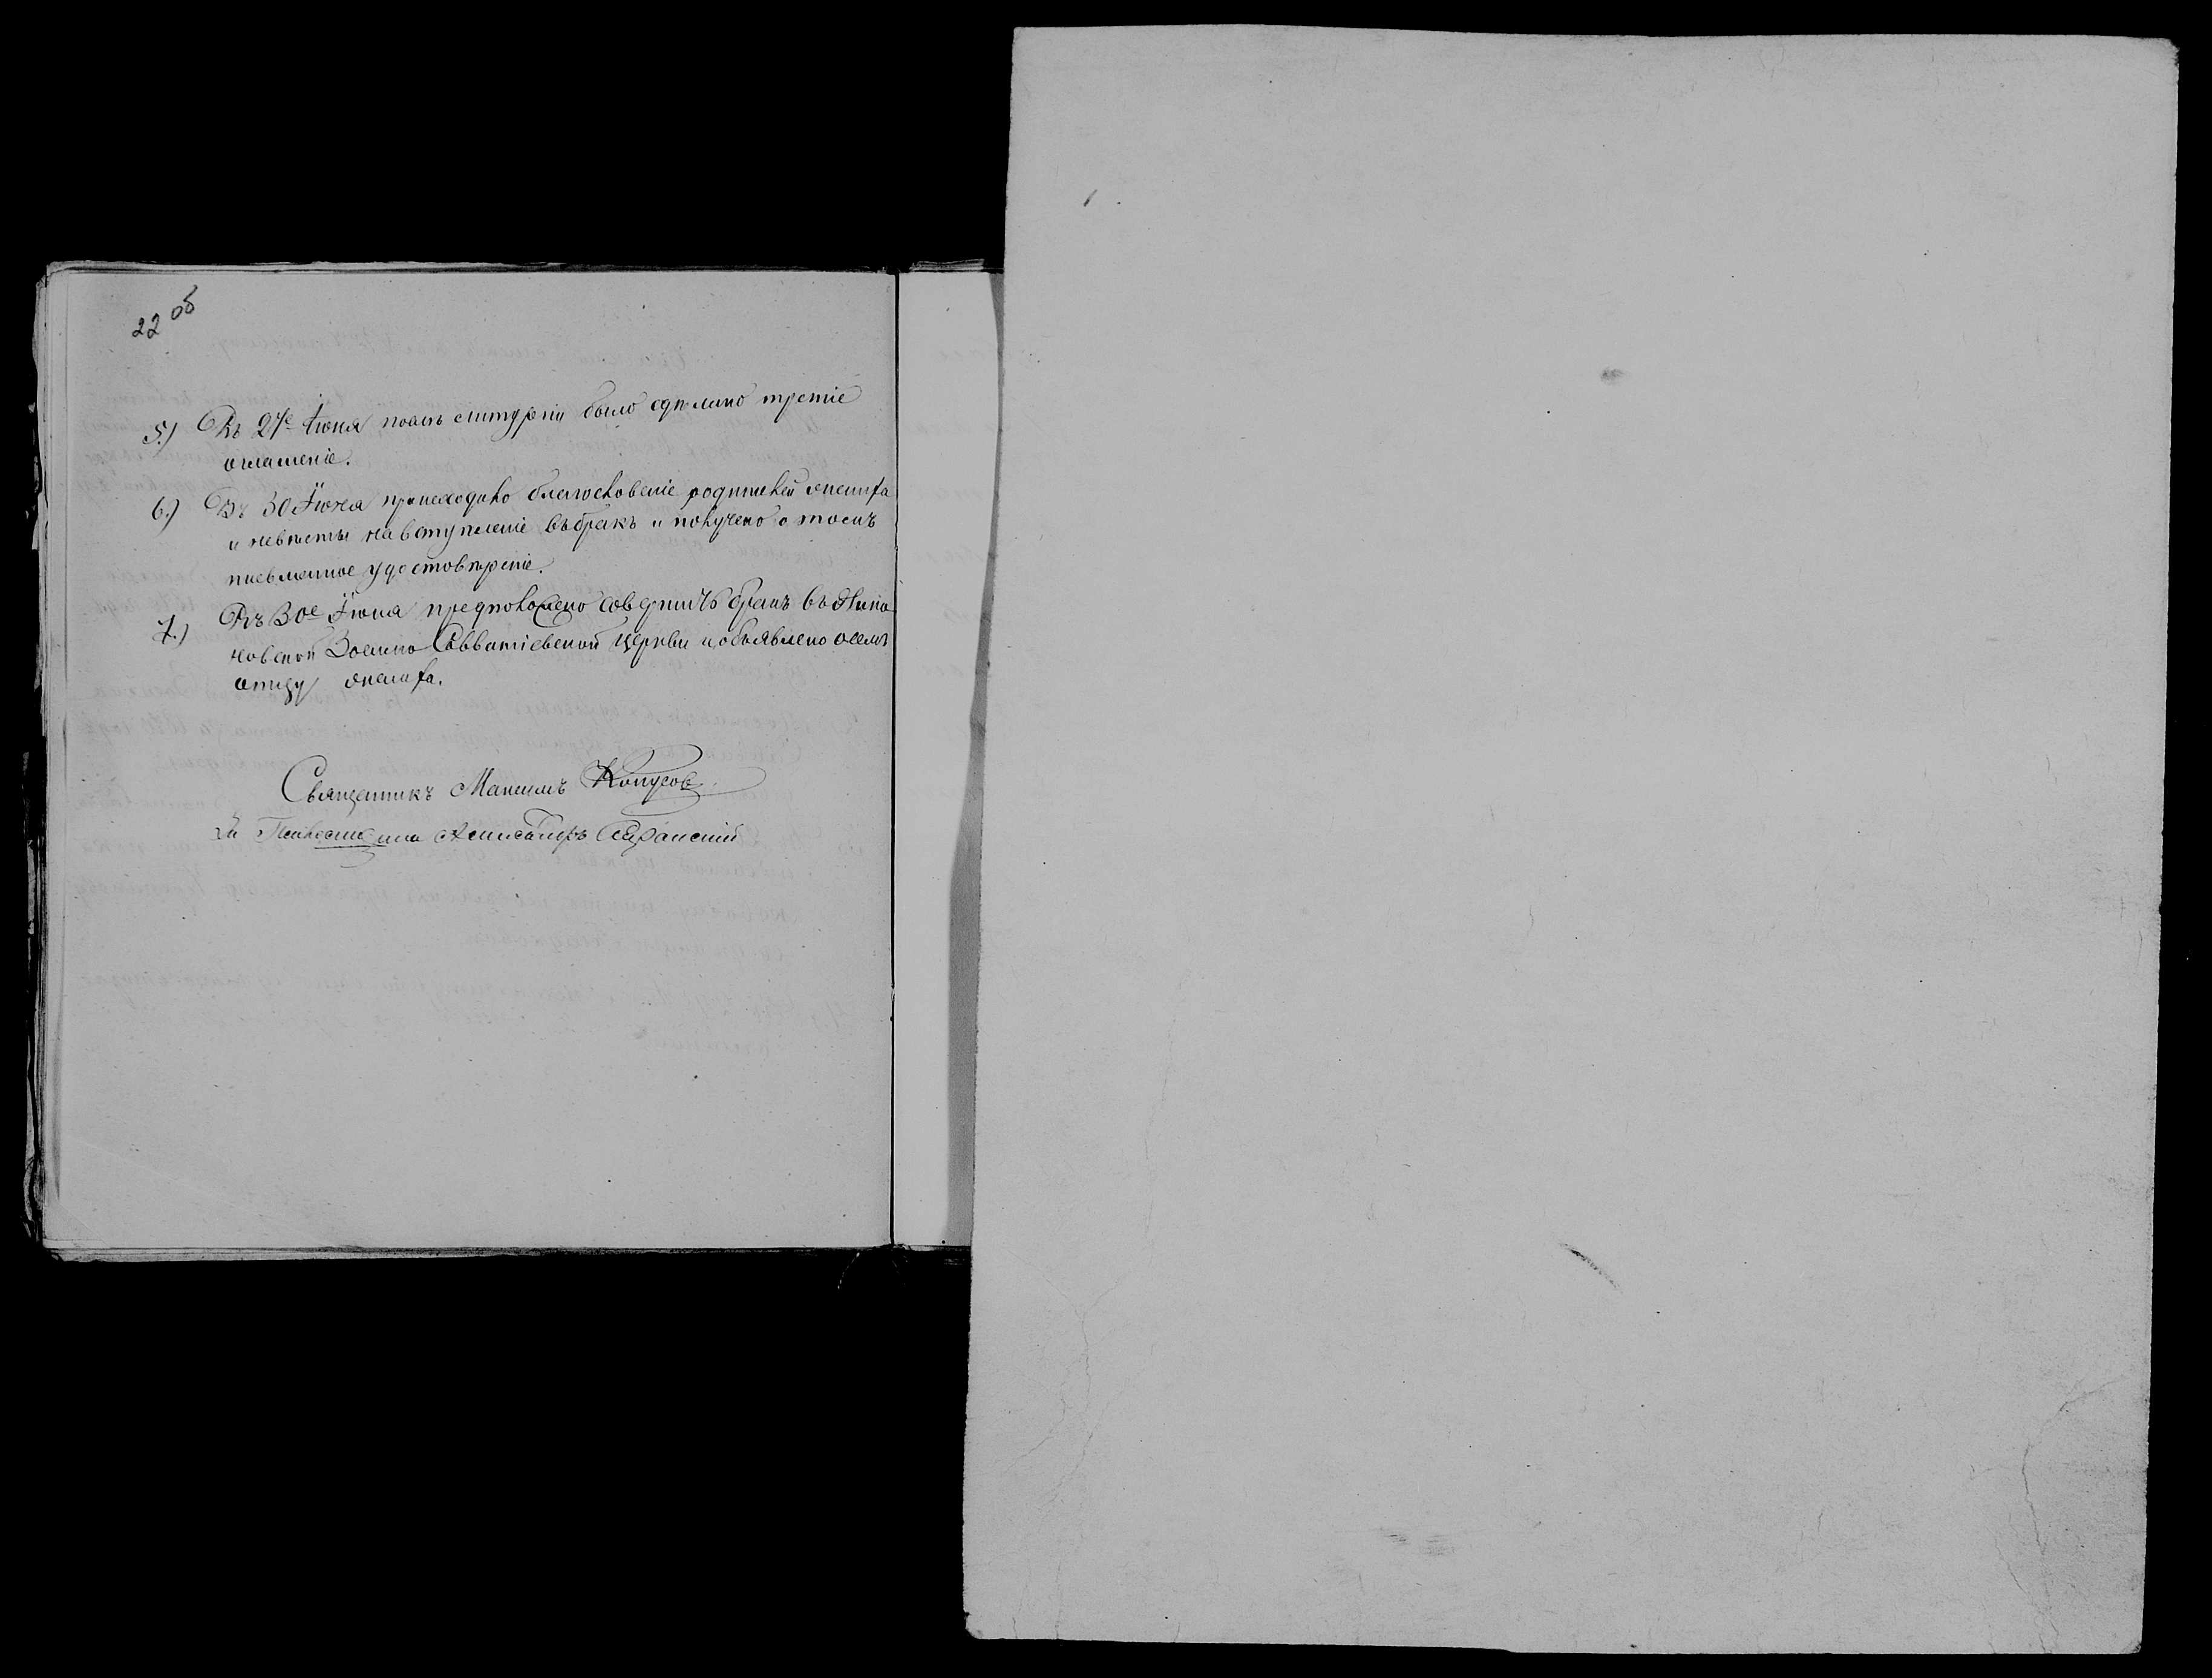 22 об
5.) Въ 27е Іюня послѣ литургіи было сдѣлано третіе
оглашеніе.
6.) Въ 30 Іюня происходило благословеніе родителей жениха
и невѣсты на вступленіе въ бракъ и получено о томъ
письменное удостовѣреніе.
7.) Въ 30е Іюня предположено совершить бракъ въ
новской Зосимо Савватіевской церкви и объявлено о семъ
отцу жениха.
Священникъ Максимъ
Псаломщика Александръ